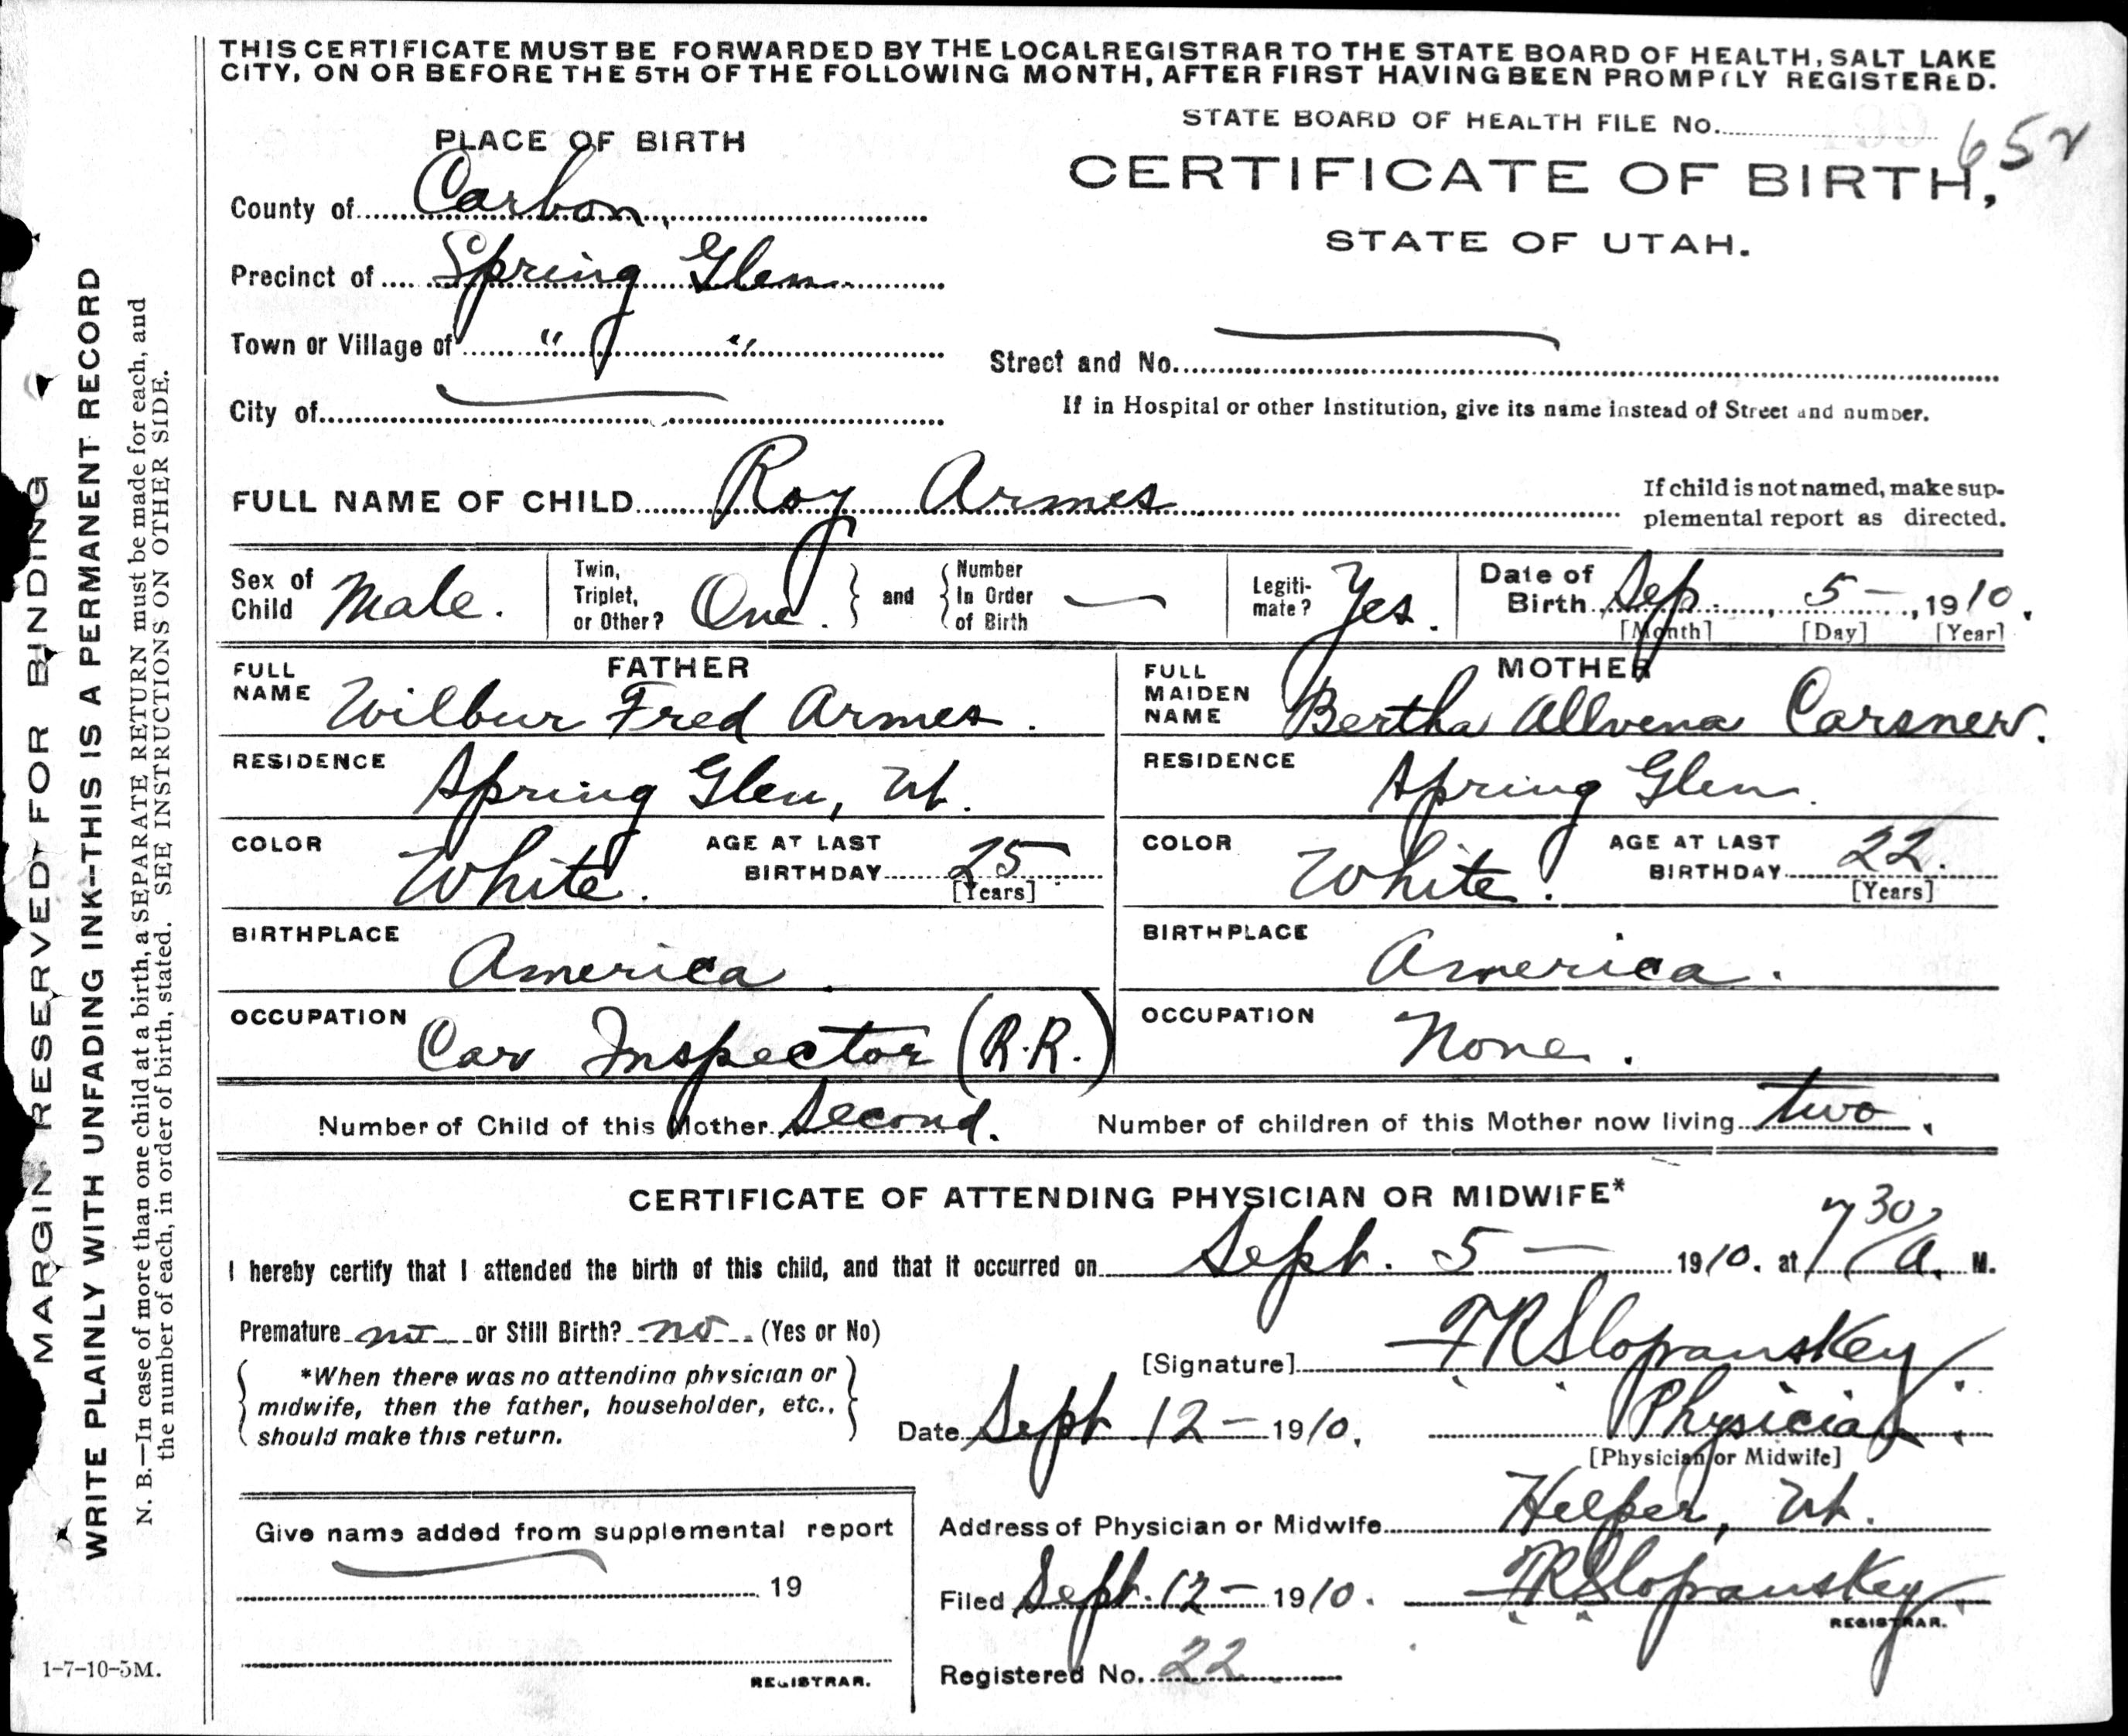 THIS CERTIFICATE MUST BE FORWARDED BY THE LOCAL REGISTRAR TO THE STATE BOARD OF HEALTH, SALT LAKE
CITY, ON OR BEFORE THE 5TH OF THE FOLLOWING MONTH, AFTER FIRST HAVING BEEN PROMPTLY REGISTERED.
STATE BOARD OF HEALTH FILE No. 652
PLACE OF BIRTH
CERTIFICATE OF BIRTH,
STATE OF UTAH.
County of Carbon.
Precinct of Spring Glen
Town or Village of " "
Street and No.
City of
If in Hospital or other Institution, give its name instead of Street and number.
FULL NAME OF CHILD Roy Armes
If child is not named, make sup-
plemental report as directed.
Sex of Child Male.
Twin, Triplet, or Other? One. and Number In Order of Birth —
Legiti-mate? Yes.
Date of Birth Sep. 5 —, 1910.
[Month] [Day] [Year]
FATHER
FULL NAME Wilbur Fred Armes.
RESIDENCE Spring Glen, Ut.
COLOR White. AGE AT LAST BIRTHDAY 25 [Years]
BIRTHPLACE America
OCCUPATION Car Inspector (R.R.)
MOTHER
FULL MAIDEN NAME Bertha Allvena Carsner.
RESIDENCE Spring Glen.
COLOR White. AGE AT LAST BIRTHDAY 22. [Years]
BIRTHPLACE America.
OCCUPATION None.
Number of Child of this Mother Second. Number of children of this Mother now living two.
CERTIFICATE OF ATTENDING PHYSICIAN OR MIDWIFE*
I hereby certify that I attended the birth of this child, and that it occurred on Sept. 5 — 1910. at 7 30/ a. M.
Premature no or Still Birth? no (Yes or No)
*When there was no attending physician or
midwife, then the father, householder, etc.,
should make this return.
[Signature] F R Slopanskey
Date Sept 12 — 1910. Physician.
[Physician or Midwife]
Address of Physician or Midwife Helper, Ut.
Filed Sept. 12 — 1910. F R Slopanskey
REGISTRAR.
Registered No. 22
Give name added from supplemental report
19
REGISTRAR.
1-7-10-5M.
MARGIN RESERVED FOR BINDING
WRITE PLAINLY WITH UNFADING INK--THIS IS A PERMANENT RECORD
N. B.—In case of more than one child at a birth, a SEPARATE RETURN must be made for each, and
the number of each, in order of birth, stated. SEE INSTRUCTIONS ON OTHER SIDE.